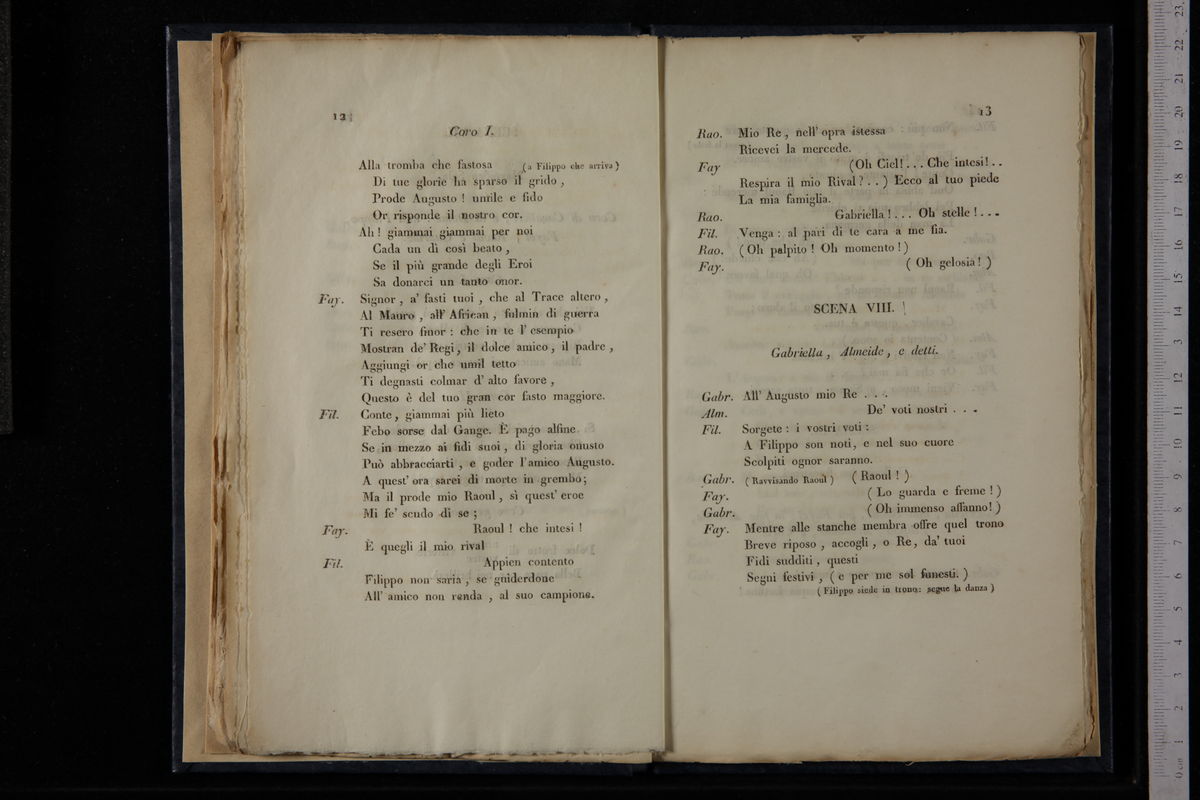 12
Coro I.
Alla tromba che fastosa (a Filippo che arriva)
Di tue glorie ha sparso il grido,
Prode Augusto! umile e fido
Or risponde il nostro cor.
Ah! giammai giammai per noi
Cada un dì così beato,
Se il più grande degli Eroi
Sa donarci un tanto onor.
Fay. Signor, a' fasti tuoi, che al Trace altero,
Al Mauro, all' African, fulmin di guerra
Ti resero finor: che in te l'esempio
Mostran de' Regi, il dolce amico, il padre,
Aggiungi or che umil tetto
Ti degnasti colmar d'alto favore,
Questo è del tuo gran cor fasto maggiore.
Fil. Conte, giammai più lieto
Febo sorse dal Gange. È pago alfine.
Se in mezzo ai fidi suoi, di gloria onusto
Può abbracciarti, e goder l'amico Augusto.
A quest' ora sarei di morte in grembo;
Ma il prode mio Raoul, sì quest' eroe
Mi fe' scudo di se;
Fay. Raoul! che intesi!
È quegli il mio rival
Fil. Appien contento
Filippo non saria, se guiderdone
All' amico non renda, al suo campione.
13
Rao. Mio Re, nell' opra istessa
Ricevei la mercede.
Fay (Oh Ciel!... Che intesi!..
Respira il mio Rival?..) Ecco al tuo piede
La mia famiglia.
Rao. Gabriella!... Oh stelle!...
Fil. Venga: al pari di te cara a me fia.
Rao. (Oh palpito! Oh momento!)
Fay. (Oh gelosia!)
SCENA VIII.
Gabriella, Almeide, e detti.
Gabr. All' Augusto mio Re...
Alm. De' voti nostri...
Fil. Sorgete: i vostri voti:
A Filippo son noti, e nel suo cuore
Scolpiti ognor saranno.
Gabr. (Ravvisando Raoul) (Raoul!)
Fay. (Lo guarda e freme!)
Gabr. (Oh immenso affanno!)
Fay. Mentre alle stanche membra offre quel trono
Breve riposo, accogli, o Re, da' tuoi
Fidi sudditi, questi
Segni festivi, (e per me sol funesti.)
(Filippo siede in trono: segue la danza)